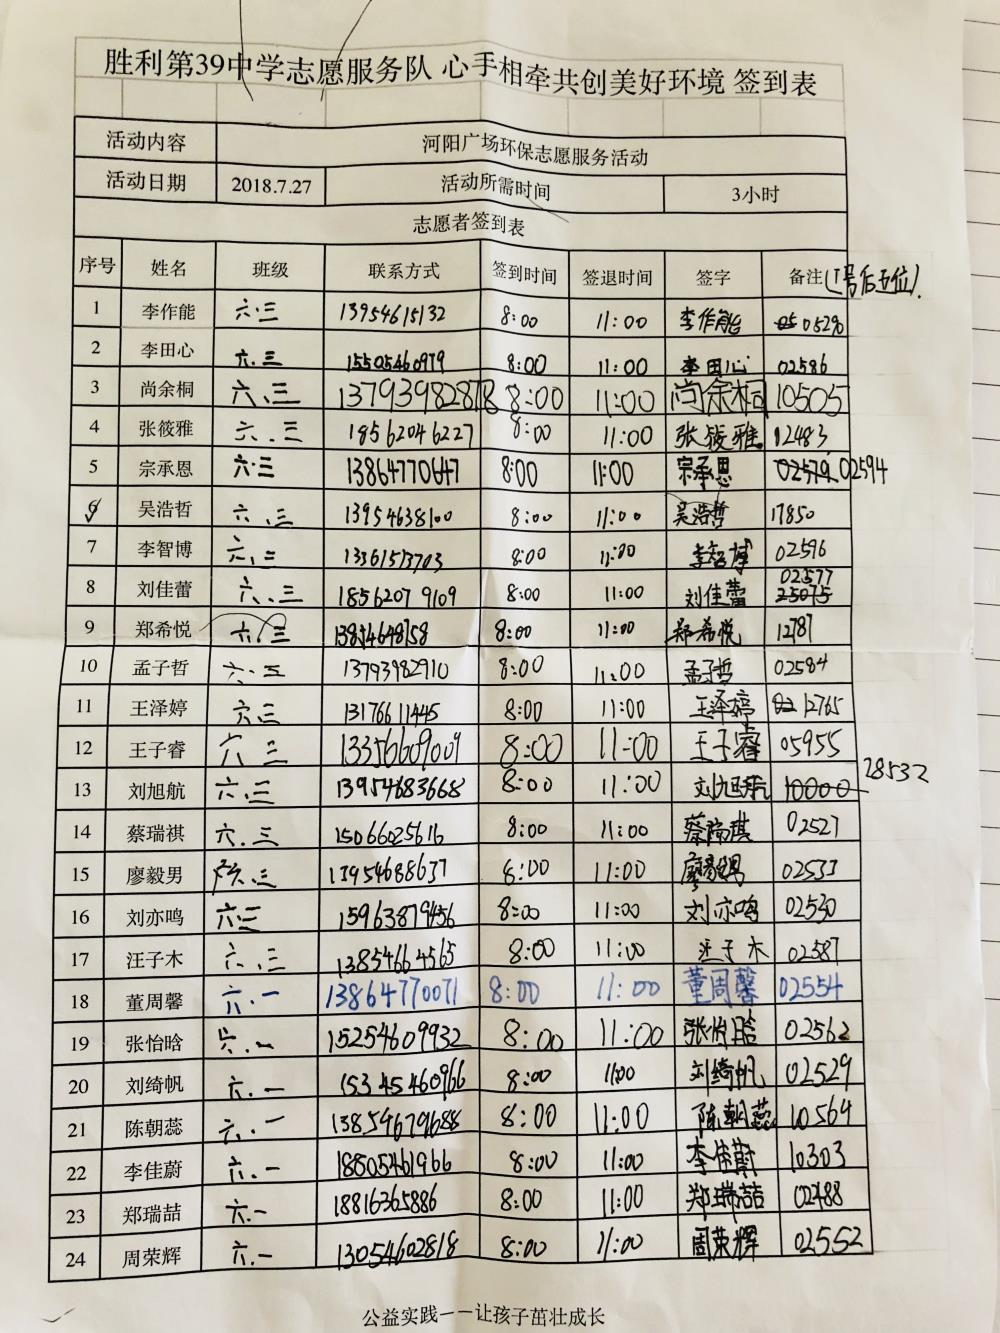 胜利第39中学志愿服务队 心手相牵共创美好环境 签到表
活动内容 河阳广场环保志愿服务活动
活动日期 2018.7.27 活动所需时间 3小时
志愿者签到表
序号 姓名 班级 联系方式 签到时间 签退时间 签字 备注(1号后五位).
1 李作能 六.三 13954615132 8:00 11:00 李作能 05290
2 李田心 六.三 15505460979 8:00 11:00 李田心 02586
3 尚余桐 六.三 13793982878 8:00 11:00 尚余桐 10505
4 张筱雅 六.三 18562046227 8:00 11:00 张筱雅 12483
5 宗承恩 六.三 13864770647 8:00 11:00 宗承恩 02579 02594
6 吴浩哲 六.三 13954638100 8:00 11:00 吴浩哲 17850
7 李智博 六.三 13361513703 8:00 11:00 李智博 02596
8 刘佳蕾 六.三 18562079109 8:00 11:00 刘佳蕾 02577 25075
9 郑希悦 六.三 8:00 11:00 郑希悦 12787
10 孟子哲 六.五 13793982910 8:00 11:00 孟子哲 02584
11 王泽婷 六.三 13176611445 8:00 11:00 王泽婷 02 12765
12 王子睿 六.三 13356609009 8:00 11:00 王子睿 05955
13 刘旭航 六.三 13954683668 8:00 11:00 刘旭航 10000 28532
14 蔡瑞祺 六.三 15066025616 8:00 11:00 蔡瑞祺 02527
15 廖毅男 六.三 13954688637 8:00 11:00 廖毅男 02533
16 刘亦鸣 六.三 15963879456 8:00 11:00 刘亦鸣 02530
17 汪子木 六.三 13854664565 8:00 11:00 汪子木 02587
18 董周馨 六.一 13864770071 8:00 11:00 董周馨 02554
19 张怡晗 六.一 15254609932 8:00 11:00 张怡晗 02562
20 刘绮帆 六.一 15345460966 8:00 11:00 刘绮帆 02529
21 陈朝蕊 六.一 13854679688 8:00 11:00 陈朝蕊 10564
22 李佳蔚 六.一 18805461966 8:00 11:00 李佳蔚 10303
23 郑瑞喆 六.一 18816365886 8:00 11:00 郑瑞喆 02488
24 周荣辉 六.一 13054602818 8:00 11:00 周荣辉 02552
公益实践——让孩子茁壮成长